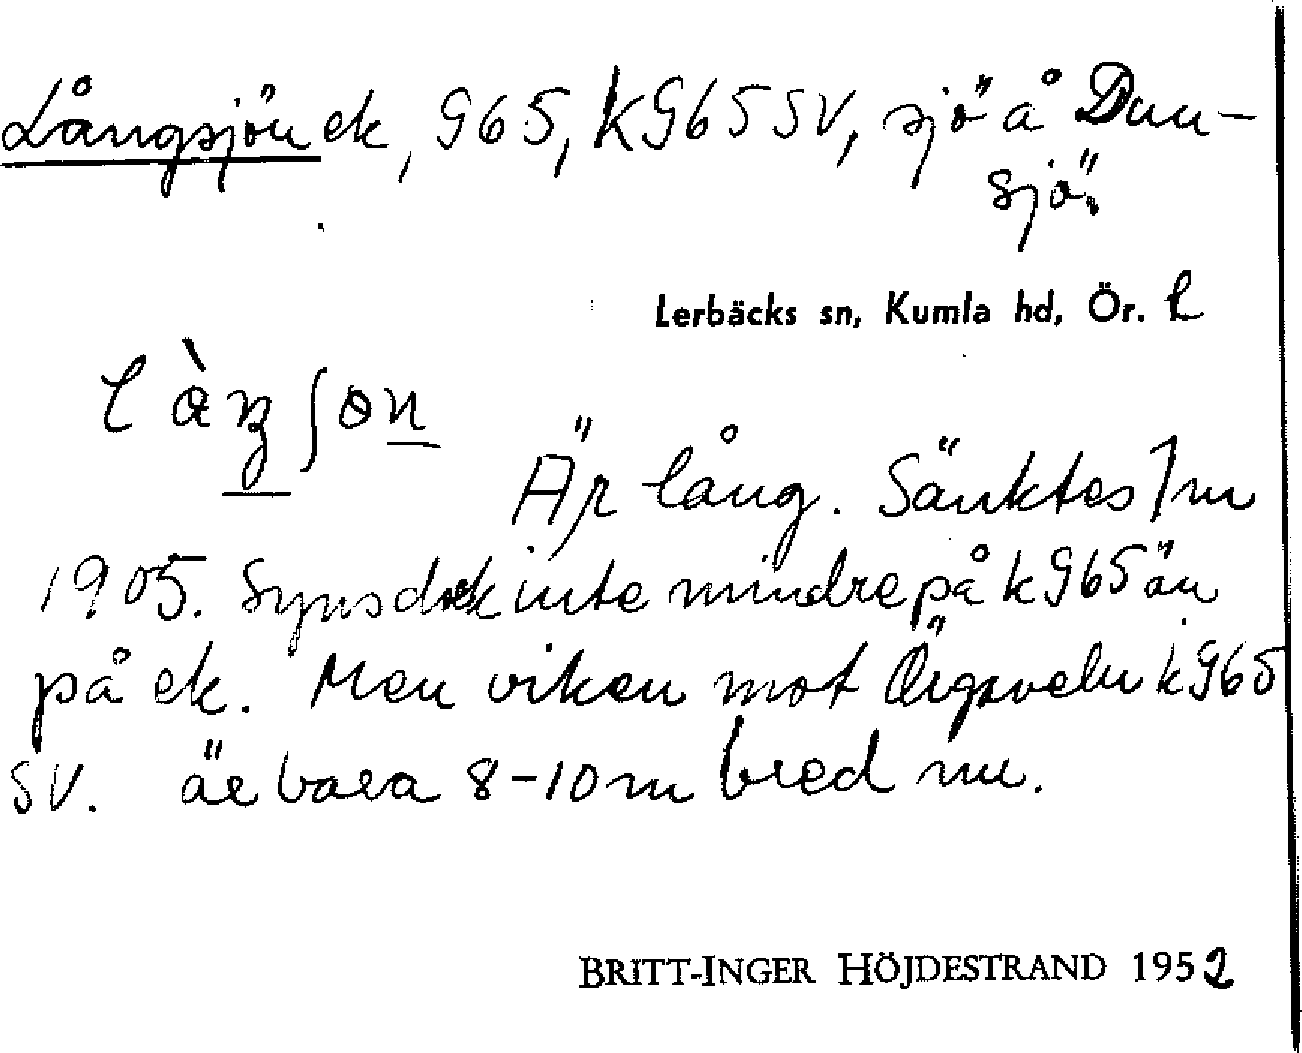 Långsjön ek, 965, K965 SV, sjö å Dun-
sjö.
Lerbäcks sn, Kumla hd, Ör. l
Är lång. Sänktes 1 m
1905. Syns dock inte mindre på k 965 än
på ek. Men viken mot k 965
SV. är bara 8-10 m bred nu.
BRITT-INGER HÖJDESTRAND 1952